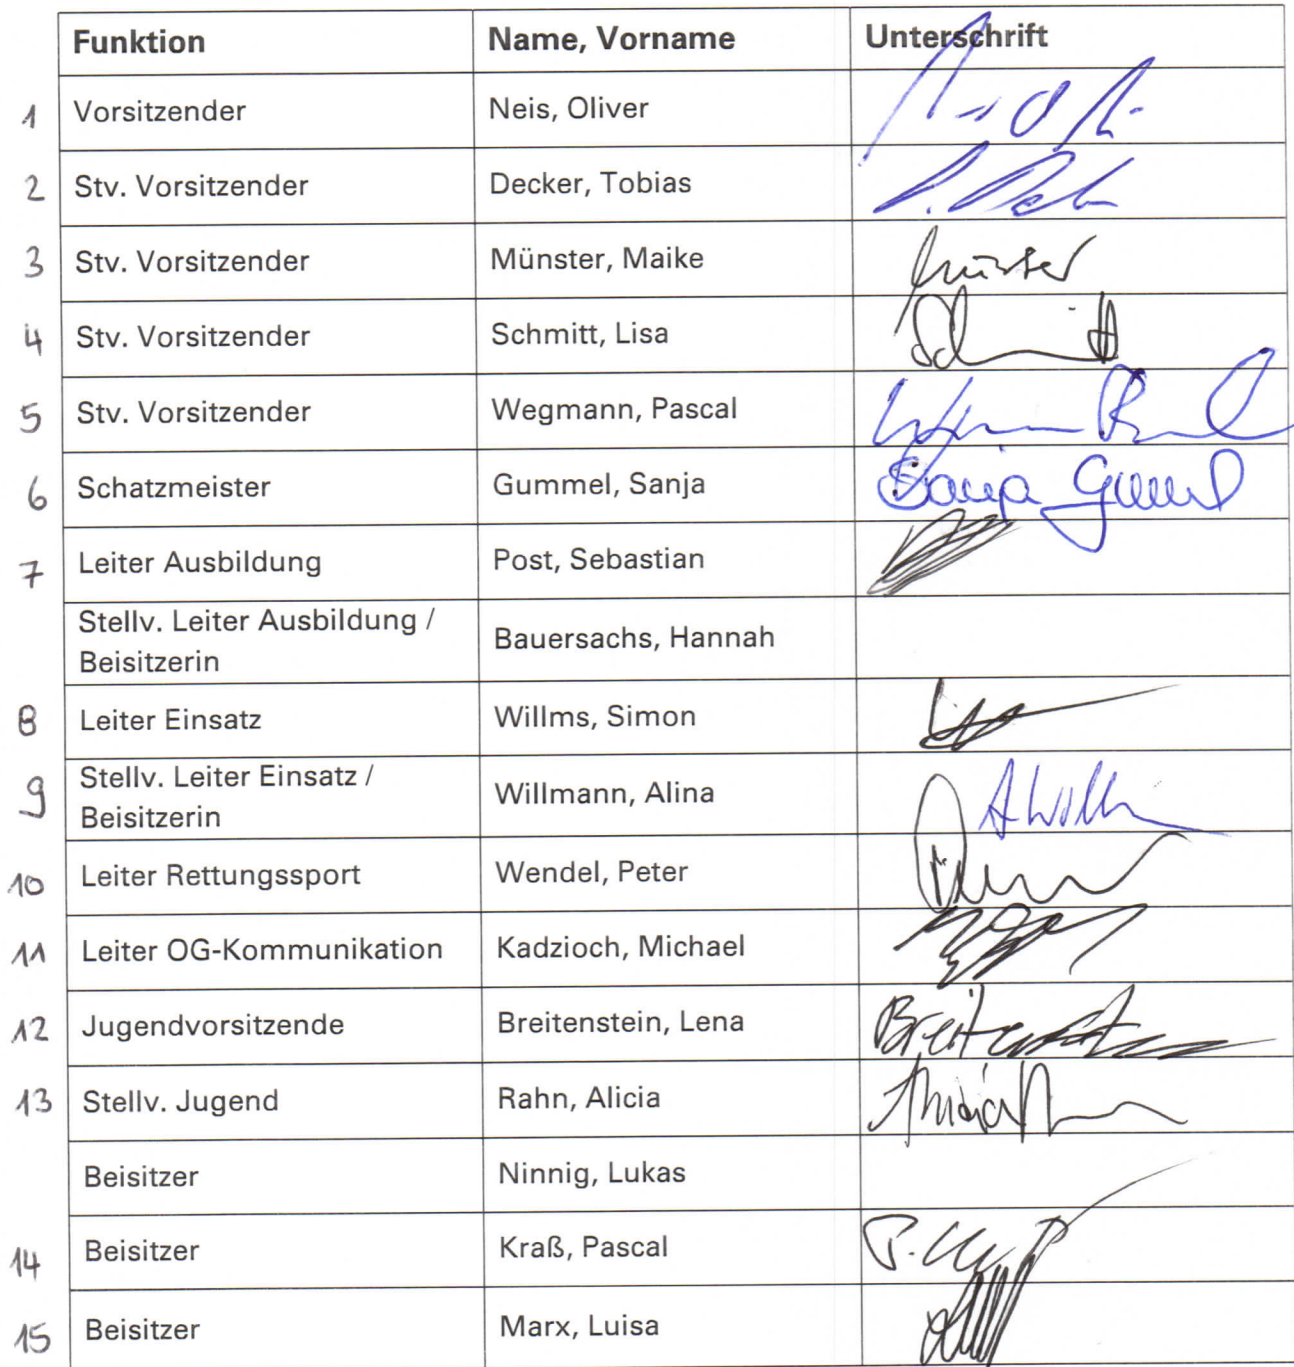 Funktion Name, Vorname Unterschrift
1 Vorsitzender Neis, Oliver
2 Stv. Vorsitzender Decker, Tobias
3 Stv. Vorsitzender Münster, Maike Münster
4 Stv. Vorsitzender Schmitt, Lisa
5 Stv. Vorsitzender Wegmann, Pascal
6 Schatzmeister Gummel, Sanja Sanja Gummel
7 Leiter Ausbildung Post, Sebastian
Stellv. Leiter Ausbildung /
Beisitzerin Bauersachs, Hannah
8 Leiter Einsatz Willms, Simon
9 Stellv. Leiter Einsatz /
Beisitzerin Willmann, Alina
10 Leiter Rettungssport Wendel, Peter
11 Leiter OG-Kommunikation Kadzioch, Michael
12 Jugendvorsitzende Breitenstein, Lena
13 Stellv. Jugend Rahn, Alicia
Beisitzer Ninnig, Lukas
14 Beisitzer Kraß, Pascal
15 Beisitzer Marx, Luisa